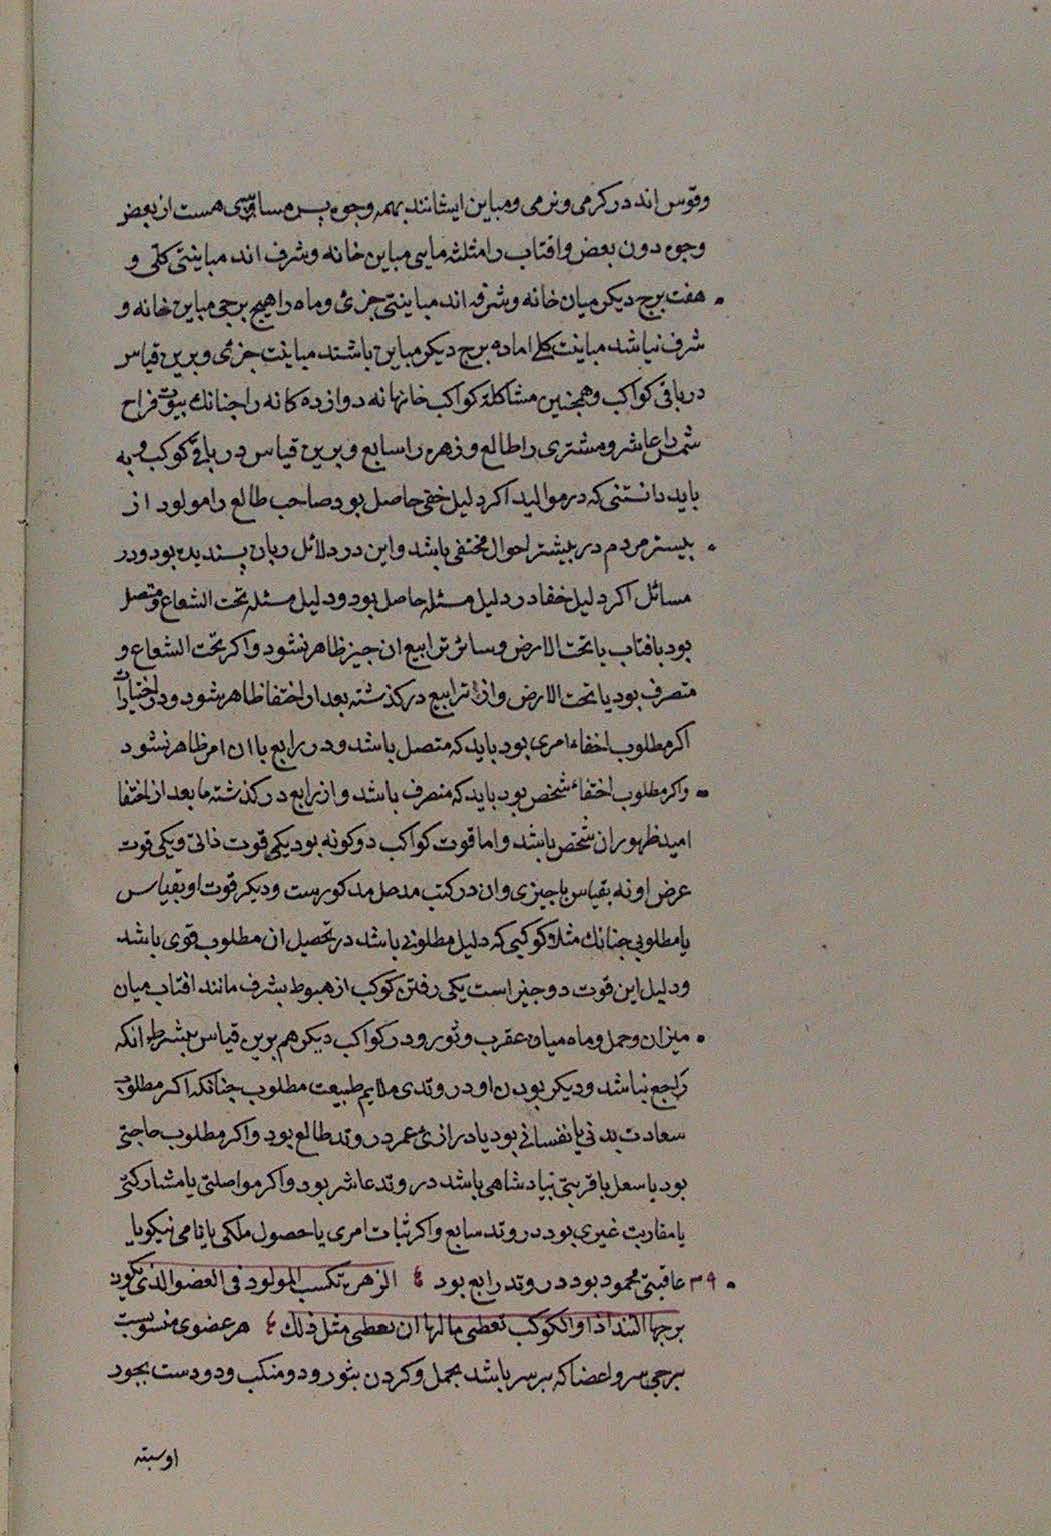 وقوس اند در کرمی و نرمی و مباین ایشانند بهمه وجوه پس مساسبتی هست از بعض
وجوه دون بعض و افتاب را مثلثه مایی مباین خانه و شرف اند مباینتی کلی و
هفت برج دیکر میان خانه و شرف اند مباینتی جزئ و ماه را هیچ برجی مباین خانه و
شرف نباشد مباینت کلے اما ده برج دیکر مباین باشند مباینت جزءی و برین قیاس
در باقی کواکب و همچنین مشاکلهٔ کواکب خانها نه دوازده کانه را چنانك بیوت فراح
شمس را عاشر و مشتری را طالع و زهره را سابع و برین قیاس در باقی کوکب و به
باید دانستنی که در موالید اکر دلیل خفی حاصل بود صاحب طالع را مولود از
بیستر مردم در بیشتر احوال مختفی باشد و این در دلائل ربان پسندیده بود ودر
مسائل اکر دلیل خفا در دلیل مسئله حاصل بود و دلیل مسئله تحت الشعاع و متصل
بود بافتاب یا تحت الارض و سائر ترابیع ان چیز ظاهر نشود و اکر تحت الشعاع و
متصرف بود یا تحت الارض و از ترابیع در کذشته بعد از اختفا ظاهر شود و در اختیارات
اکر مطلوب اخفاء امری بود باید که متصل باشد و در رابع با ان امر ظاهر نشود
و اکر مطلوب اختفاء شخص بود باید که منصرف باشد و از رابع در کذشته ما بعد از اختفا
امید ظهور ان شخص باشد و اما قوت کواکب دو کونه بود یکی قوت ذاتی و یکی قوت
عرض او نه بقیاس با چیزی و ان در کتب مدحل مدکورست و دیکر قوت او بقیاس
با مطلوبی چنانك مثلا کوکبی که دلیل مطلوبی باشد در تحصیل ان مطلوب قوی باشد
و دلیل این قوت دو چیز است یکی رفتن کوکب از هبوط بشرف مانند افتاب میان
میزان و حمل و ماه میان عقرب و ثور و در کواکب دیکر هم برین قیاس بشرط انکه
راجع نباشد و دیکر بودن او در وتدی ملایم طبیعت مطلوب چنانکه اکر مطلوب
سعادت بدنی یا نفسانی بود یا درازی عمر در وتد طالع بود و اکر مطلوب حاجتی
بود یا سعل یا قربتی نپادشاهی باشد در وتد عاشر بود و اکر مواصلتی یا مشارکتی
یا مقاربت غیری بود در وتد سابع و اکر ثبات امری یا حصول ملکی یا نامی نیکو یا
۳۹ عاقبتی محمود بود در وتد رابع بود الزهره تکسب المولود فی العضو الذی یکون
برجها التذاذا و الکوکب تعطی مالها ان تعطی مثل ذلك هر عضوی منسوبست
ببرجی سر و اعضا که بر سر باشد بحمل و کردن بثور و دو منکب و دو دست بجوز
او سبته